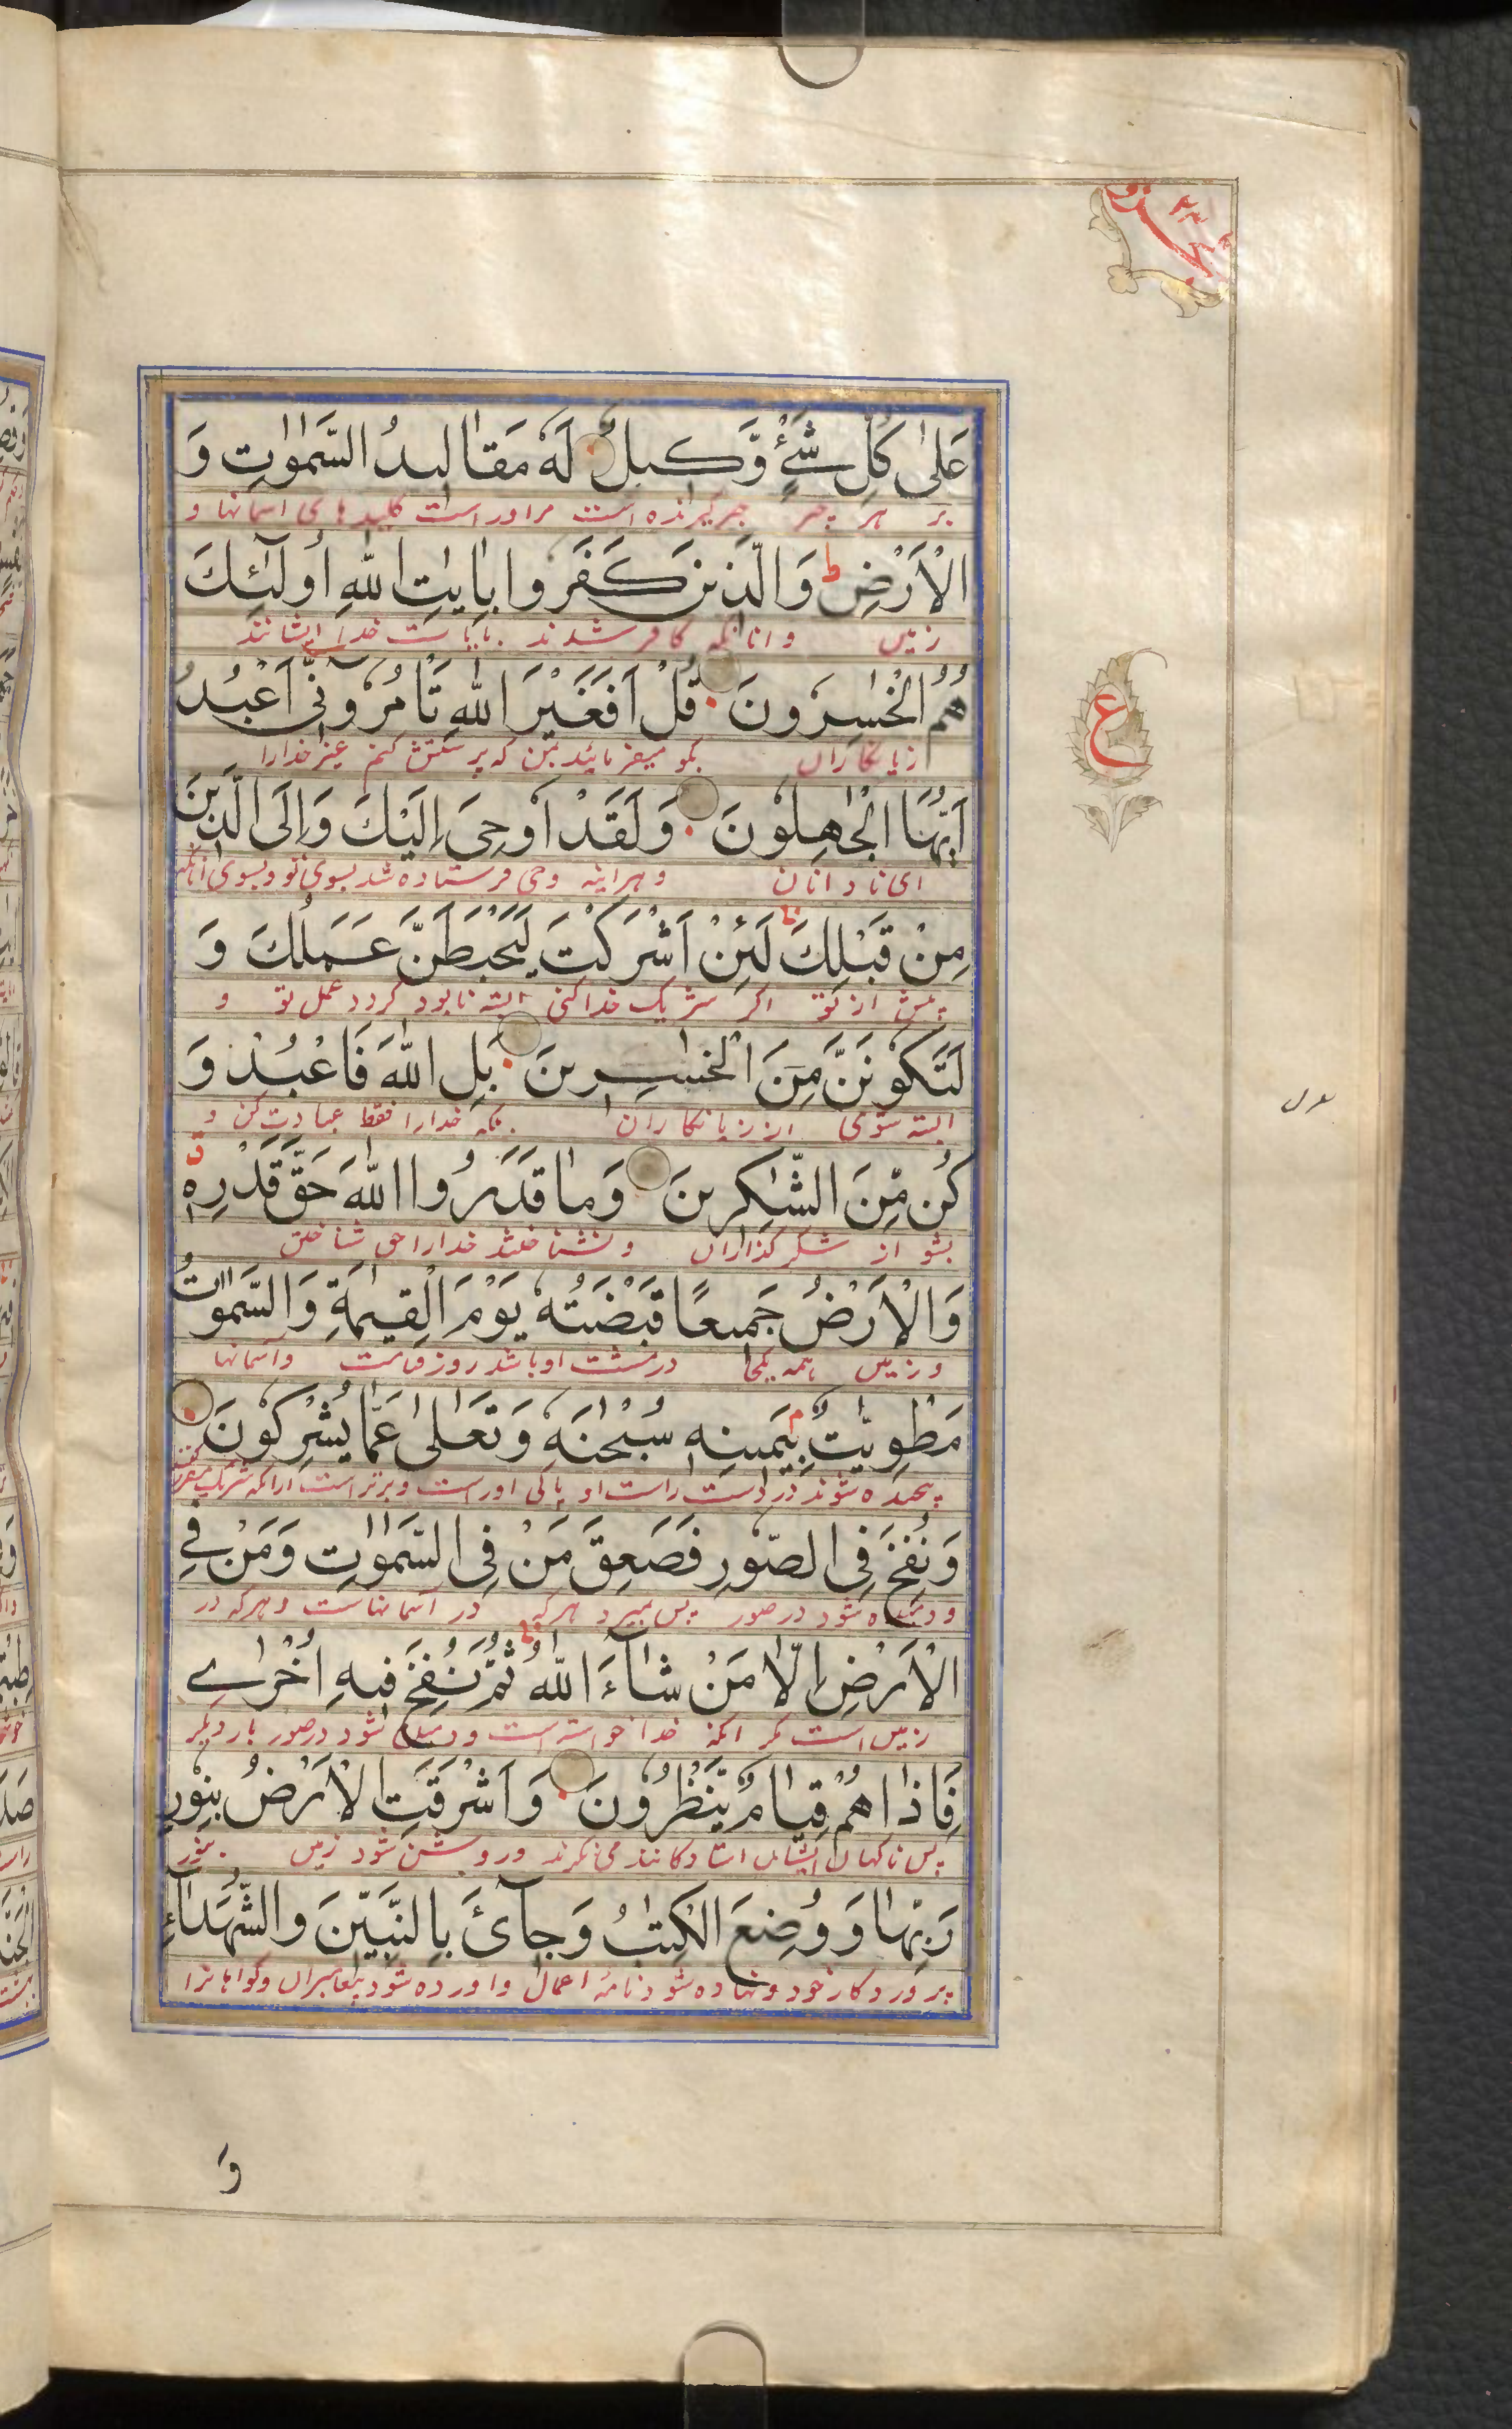 عَلىٰ كُلِّ شَیْءٍ وَّكِيلٌ لَهٗ مَقَالِيدُ السَّمٰوٰتِ وَ
بر هر چیز خبر گیرنده است مر اوراست کلیدهای اسمانها و
الْاَرْضِ ط وَالَّذِينَ كَفَرُوا بِاٰيٰتِ اللّٰهِ اُولٰٓئِكَ
زمین و انانکه کافر شدند بایات خدا ایشانند
هُمُ الْخٰسِرُونَ قُلْ اَفَغَيْرَ اللّٰهِ تَاْمُرُوٓنِّیٓ اَعْبُدُ
زیانکاران بگو میفرمائید بمن که پرستش کنم غیر خدارا
اَيُّهَا الْجٰهِلُونَ وَلَقَدْ اُوحِیَ اِلَيْكَ وَاِلَى الَّذِينَ
ای نادانان و هراینه وحی فرستاده شد بسوی تو و بسوی انانکه
مِنْ قَبْلِكَ ط لَئِنْ اَشْرَكْتَ لَيَحْبَطَنَّ عَمَلُكَ وَ
پیش از تو اگر شریک خدا کنی البته نابود گردد عمل تو و
لَتَكُونَنَّ مِنَ الْخٰسِرِينَ بَلِ اللّٰهَ فَاعْبُدْ وَ
البته شوی از زیانکاران بلکه خدارا فقط عبادت کن و
كُن مِّنَ الشّٰكِرِينَ وَمَا قَدَرُوا اللّٰهَ حَقَّ قَدْرِهٖ ق
بشو از شکر گذاران و نشناختند خدارا حق شناختن
وَالْاَرْضُ جَمِيعًا قَبْضَتُهٗ يَوْمَ الْقِيٰمَةِ وَالسَّمٰوٰتُ
و زمین همه یکجا در مشت او باشد روز قیامت و آسمانها
مَطْوِيّٰتٌ بِيَمِينِهٖ م سُبْحٰنَهٗ وَتَعٰلىٰ عَمَّا يُشْرِكُونَ
پیچیده شوند در دست راست او پاکی اوراست و برتر است ازانکه شریک مقرر کنند
وَنُفِخَ فِی الصُّورِ فَصَعِقَ مَنْ فِی السَّمٰوٰتِ وَمَنْ فِی
و دمیده شود در صور پس بمیرد هر که در آسمانهاست و هرکه در
الْاَرْضِ اِلَّا مَنْ شَآءَ اللّٰهُ ط ثُمَّ نُفِخَ فِيهِ اُخْرٰی
زمین است مگر انکه خدا خواسته است و دمیده شود در صور بار دیگر
فَاِذَا هُمْ قِيَامٌ يَّنْظُرُونَ وَاَشْرَقَتِ الْاَرْضُ بِنُورِ
پس ناگهان ایشان استادگانند می نگرند و روشن شود زمین بنور
رَبِّهَا وَوُضِعَ الْكِتٰبُ وَجِایْٓءَ بِالنَّبِيّٖنَ وَالشُّهَدَآءِ
پروردگار خود و نهاده شود نامۀ اعمال و اورده شود پیغامبران و گواهانرا
ع
وَ